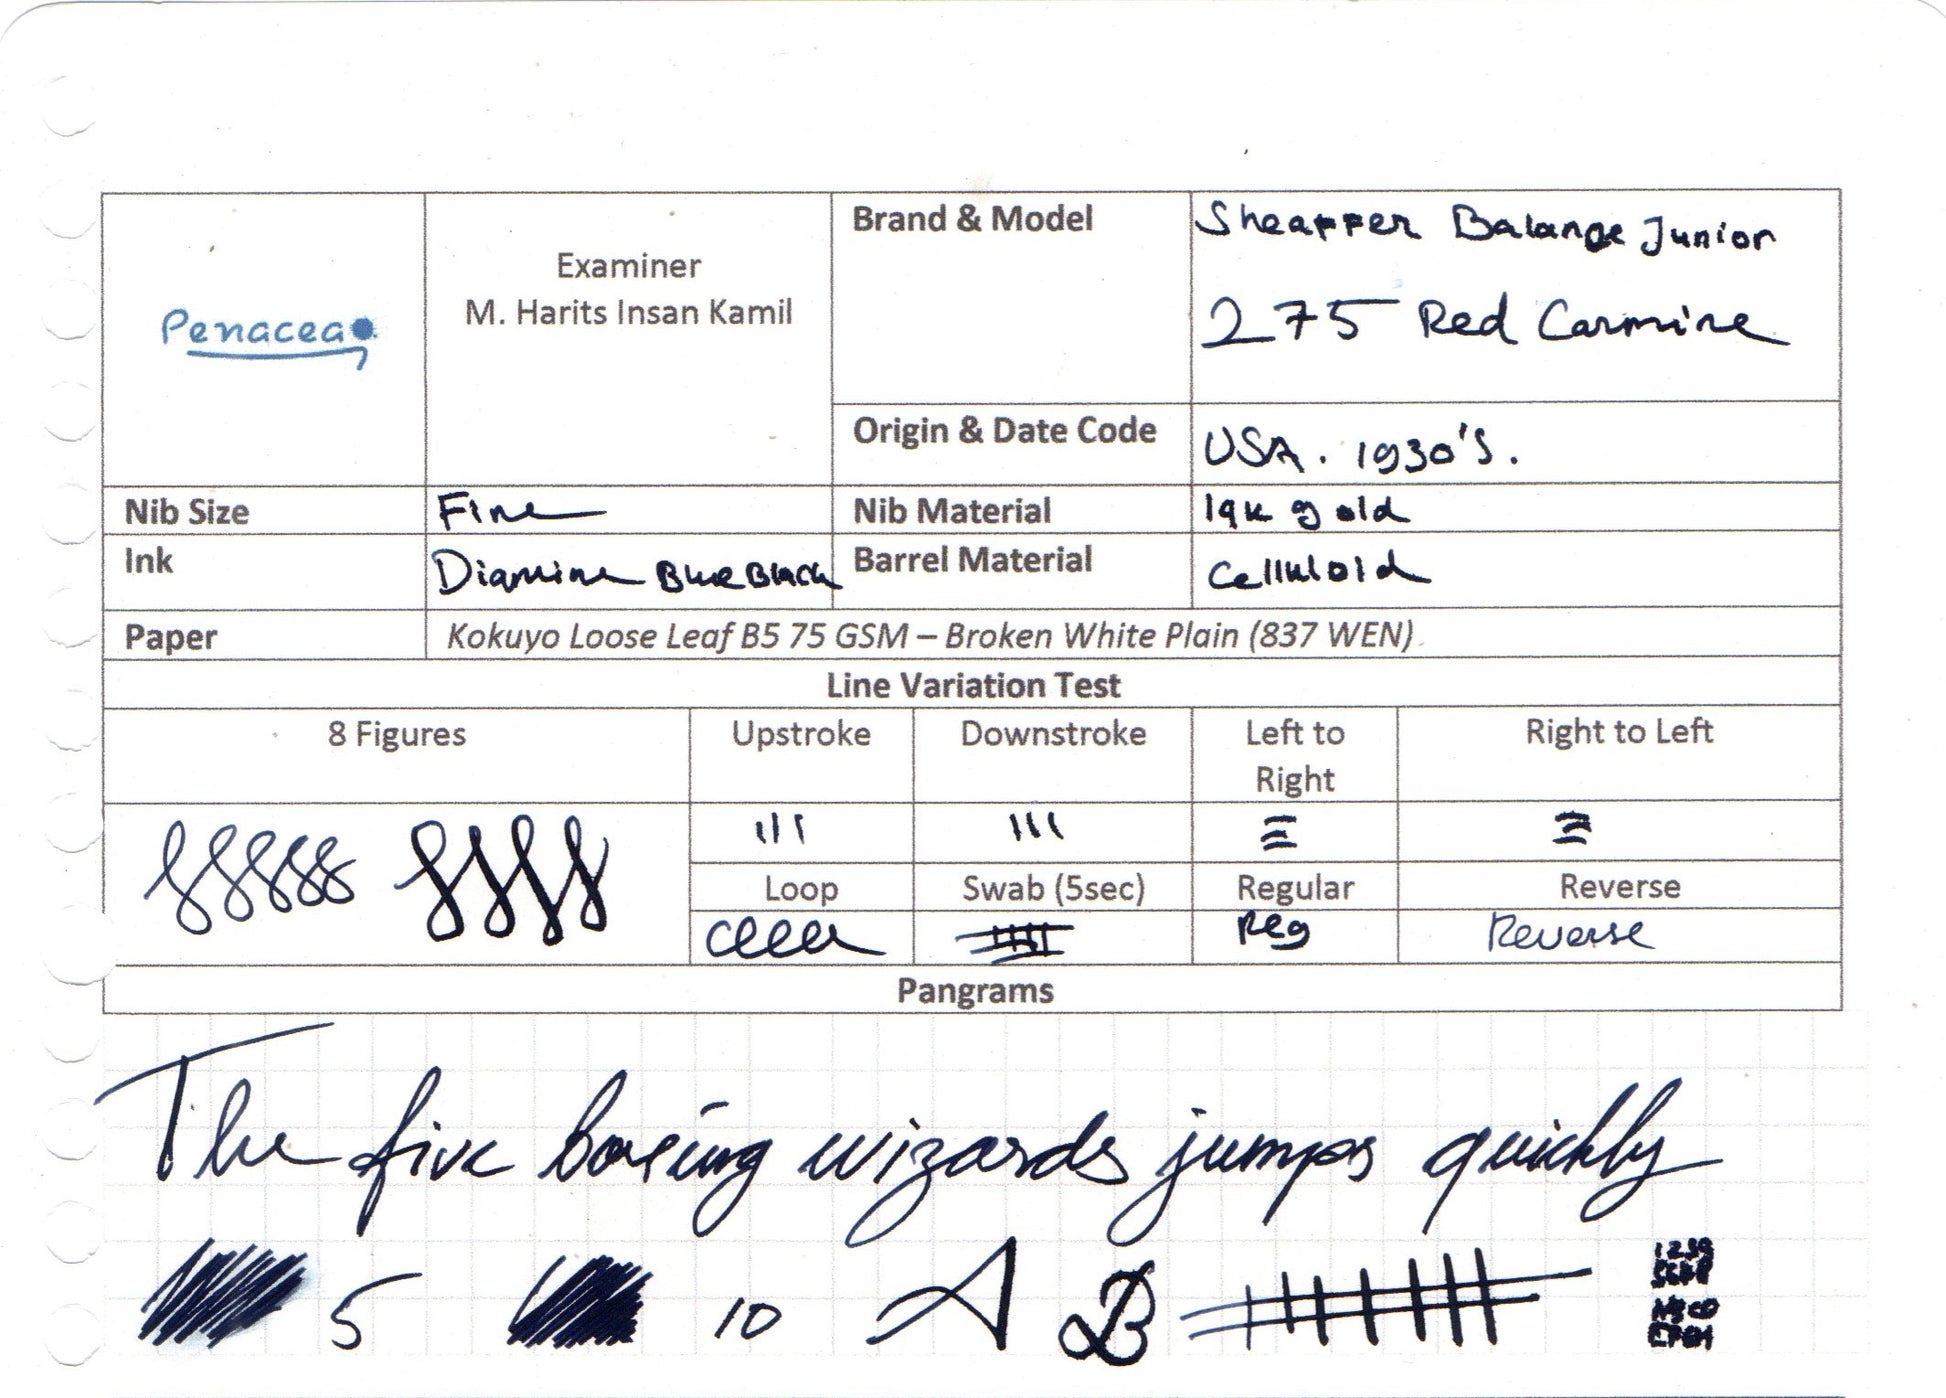 Penacea
Examiner
M. Harits Insan Kamil
Brand & Model
Sheaffer Balance Junior
275 Red Carmine
Origin & Date Code
USA. 1930's.
Nib Size
Fine
Nib Material
14k gold
Ink
Diamine Blue Black
Barrel Material
Celluloid
Paper
Kokuyo Loose Leaf B5 75 GSM – Broken White Plain (837 WEN)
Line Variation Test
8 Figures
Upstroke
Downstroke
Left to
Right
Right to Left
Loop
Swab (5sec)
Regular
Reverse
Reg
Reverse
Pangrams
The five boxing wizards jumps quickly
5
10
A
B
1234